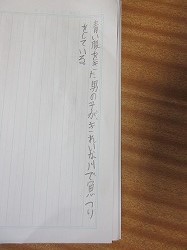 青い服を着た男の子がきれいな川で魚つり
をしている。